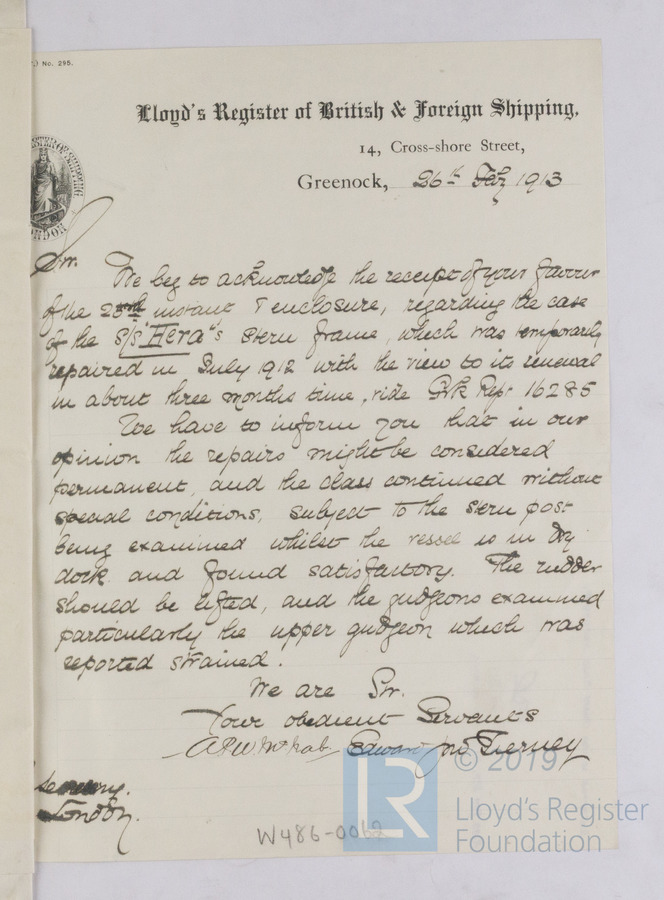 No. 295.
Lloyd's Register of British & Foreign Shipping,
14, Cross-shore Street,
Greenock, 26th Feby 1913
Sir.
We beg to acknowledge the receipt of your favour
of the 25th instant & enclosure, regarding the case
of the S/S "Hera"s stern frame, which was temporarily
repaired in July 1912 with the view to its renewal
in about three months time, vide Grk Rept 16285
We have to inform you that in our
opinion the repairs might be considered
permanent, and the class continued without
special conditions, subject to the stern post
being examined whilst the vessel is in dry
dock and found satisfactory. The rudder
should be lifted, and the gudgeons examined
particularly the upper gudgeon which was
reported strained.
We are Sir.
Your obedient Servants
Edward Jno Tierney
Secretary.
London.
W486-0062
© 2019
LR
Lloyd's Register
Foundation